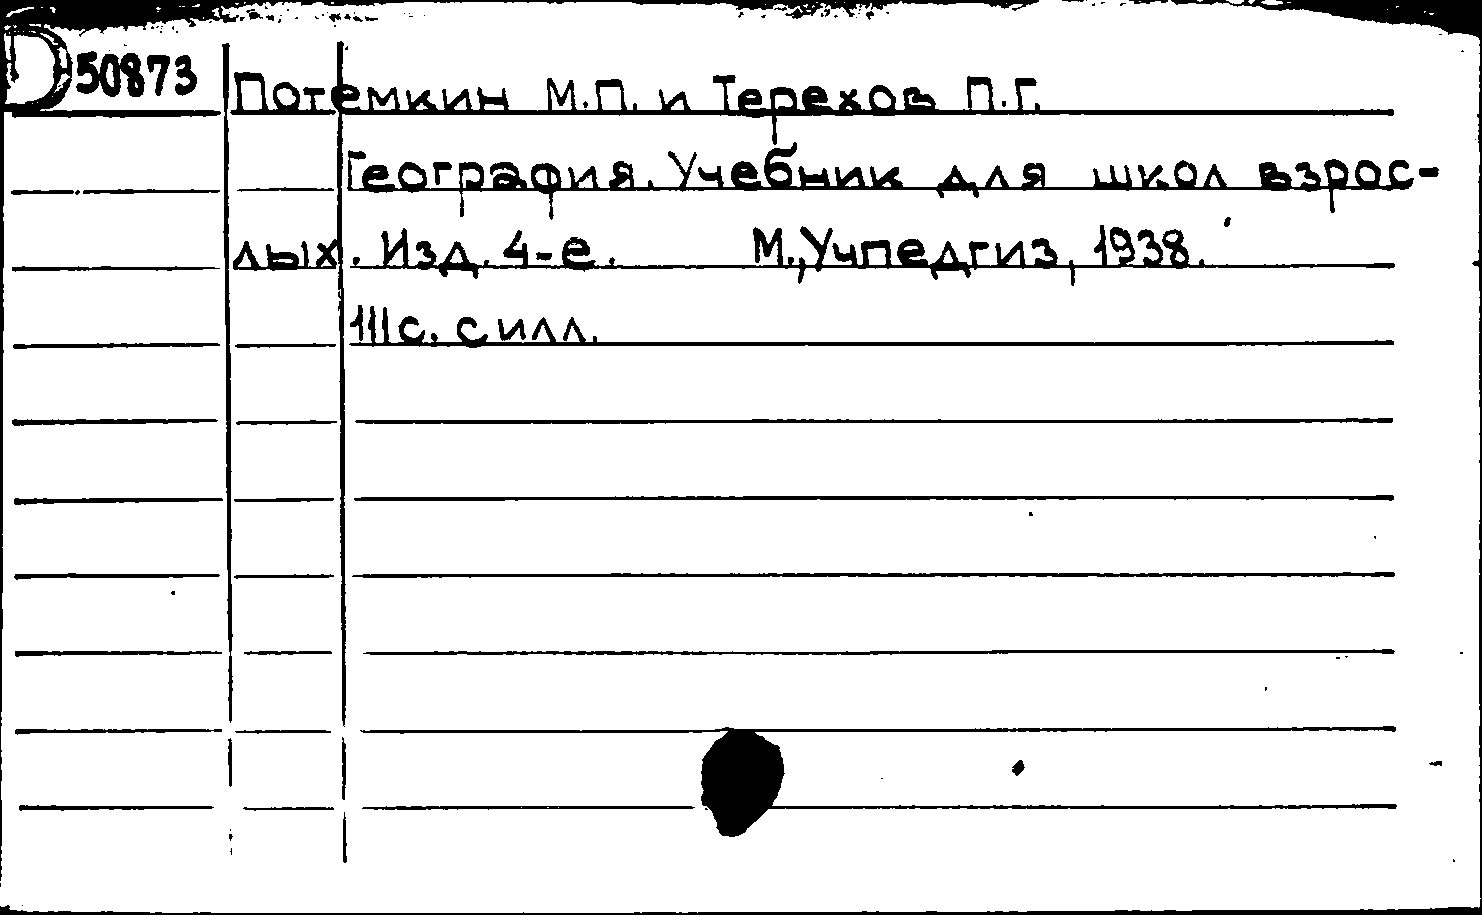 D50873
Потемкин М.П. и Терехов П.Г.
География. Учебник для школ взрос-
лых. Изд. 4-е. М., Учпедгиз, 1938.
111с. с илл.